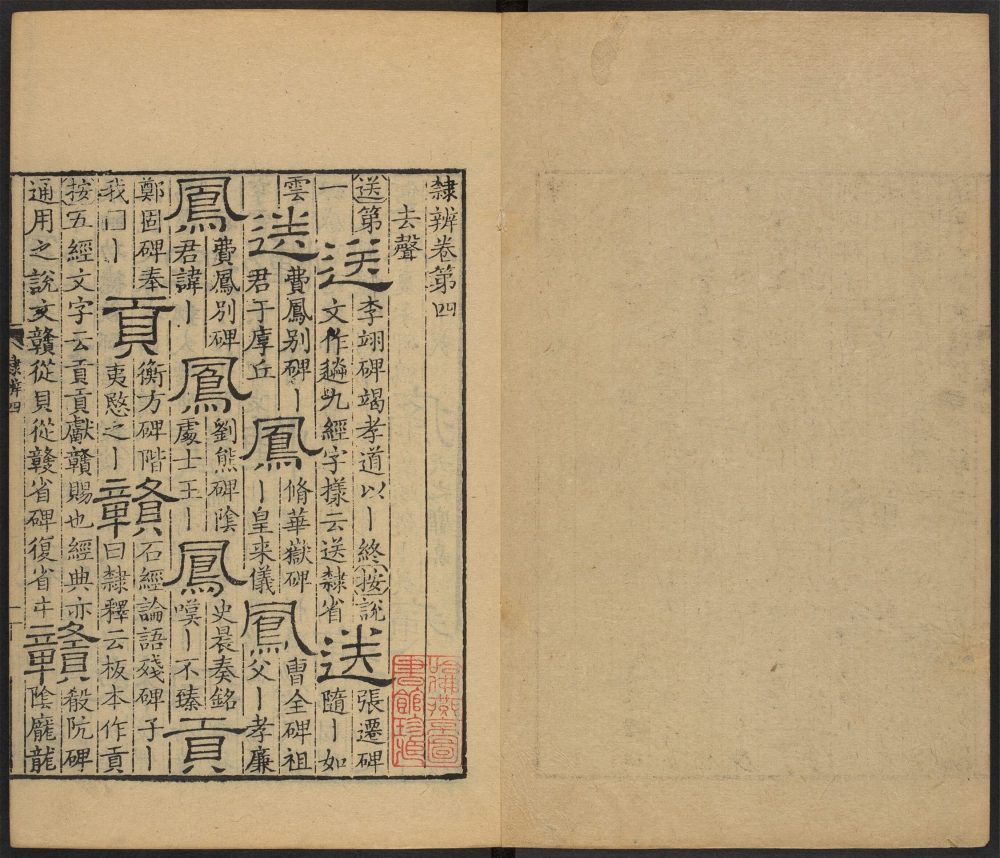 隸辨卷第四
去聲
送第
一
送
李翊碑竭孝道以丨終按說
文作䢠九經字樣云送隸省
送
張遷碑
隨丨如
雲
送
費鳳別碑丨
君于庫丘
鳳
脩華嶽碑
丨皇来儀
鳳
曹全碑祖
父丨孝廉
鳳
費鳳別碑
君諱丨
鳳
劉熊碑陰
處士王丨
鳳
史晨奏銘
嘆丨不臻
貢
鄭固碑奉
我□丨
貢
衡方碑階
夷愍之丨
贛
石經論語殘碑子丨
曰隸釋云板本作貢
按五經文字云貢貢獻贛賜也經典亦
通用之說文贛從貝從竷省碑復省㐄
贛
殽阬碑
陰龐龍
隸辨四
一
哈佛燕京圖
書館珍藏